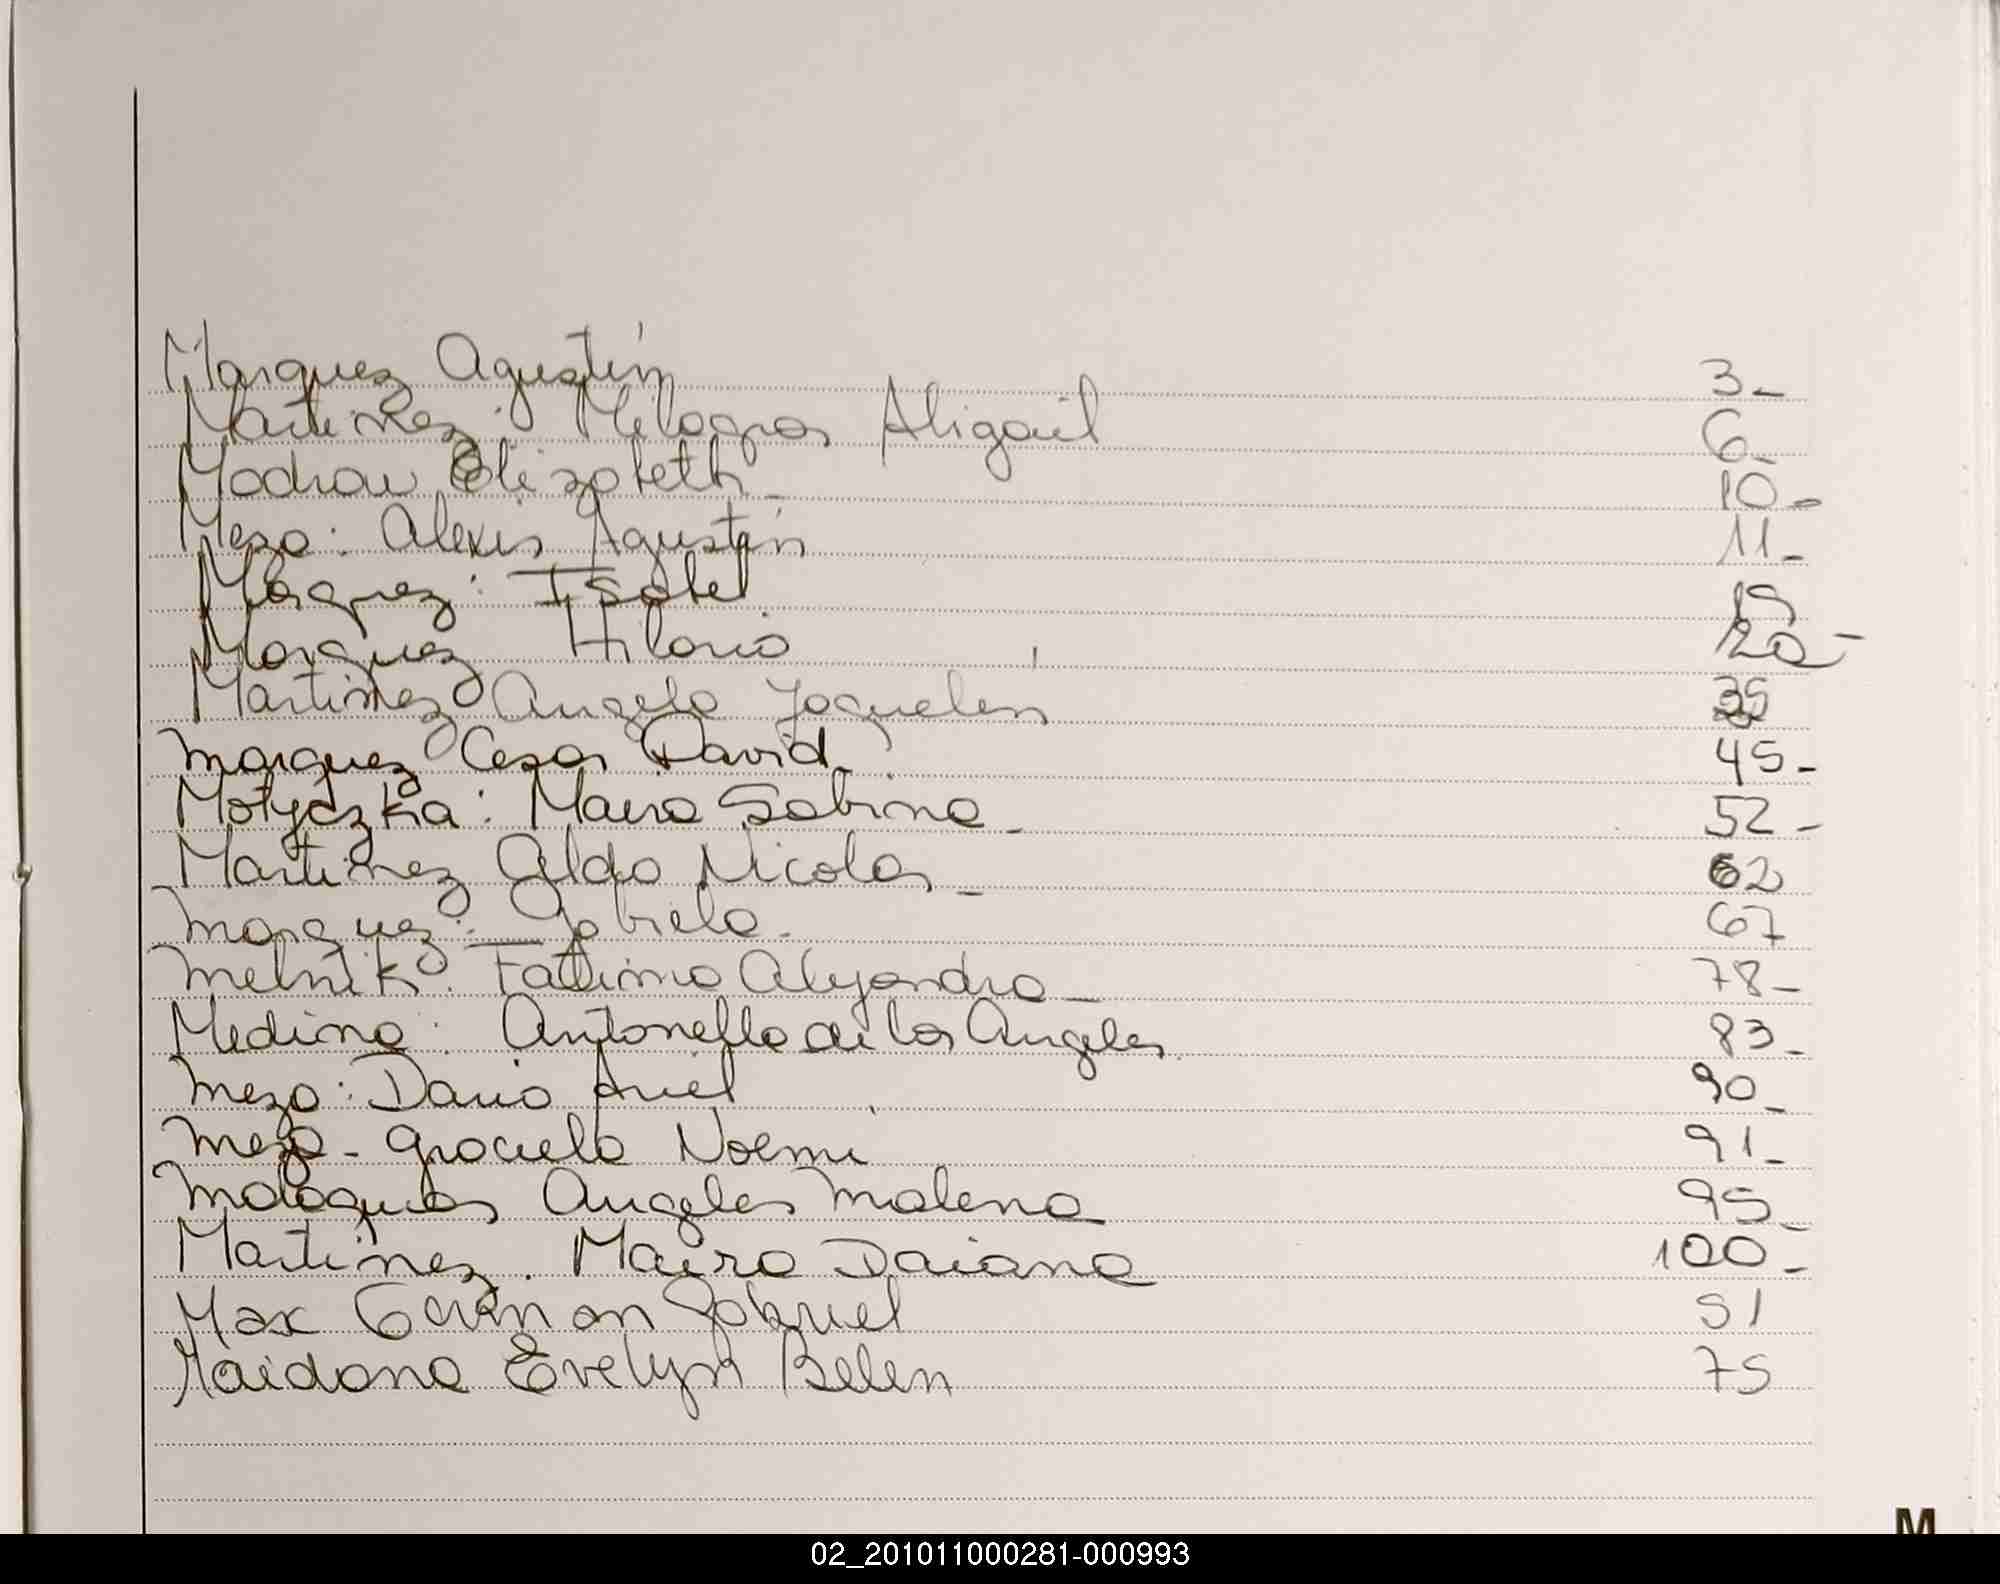 Marquez Agustín 3-
Martinez: Milagros Abigail 6-
Modrow Elizabeth - 10-
Meza: Alexis Agustín 11-
Marquez: Isabel 19
Marquez Hilario 20-
Martinez Angela Jaquelin 35
Marquez Cesar David. 45-
Motyczka: Maira Sabina - 52-
Martinez Aldo Nicolas - 62
Marquez: Gabriela. 67
Melnik: Fatima Alejandra - 78-
Medina: Antonella de los Angeles. 83-
Meza: Dario Ariel 90-
Meza - Graciela Noemi 91-
Malaquias Angeles Malena 95-
Martinez. Maira Daiana 100-
Max German Gabriel 51
Maidana Evelyn Belen 75
M
02_201011000281-000993